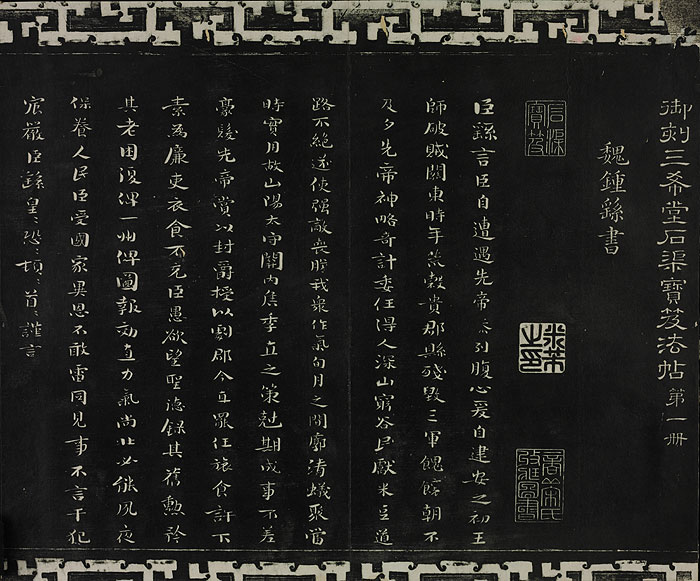 御刻三希堂石渠寶笈法帖第一冊
魏鍾繇書
石渠寶笈
臣繇言臣自遭遇先帝忝列腹心爰自建安之初王
師破賊關東時年荒穀貴郡縣殘毀三軍餽饟朝不
及夕先帝神略奇計委任得人深山窮谷民獻米豆道
路不絕遂使強敵喪膽我眾作氣旬月之間廓清蟻聚當
時實用故山陽太守關內侯季直之策剋期成事不差
豪髮先帝賞以封爵授以劇郡今直罷任旅食許下
素為廉吏衣食不充臣愚欲望聖德錄其舊勳矜
其老困復俾一州俾圖報效直力氣尚壯必能夙夜
保養人民臣受國家異恩不敢雷同見事不言干犯
宸嚴臣繇皇〻恐〻頓〻首〻謹言